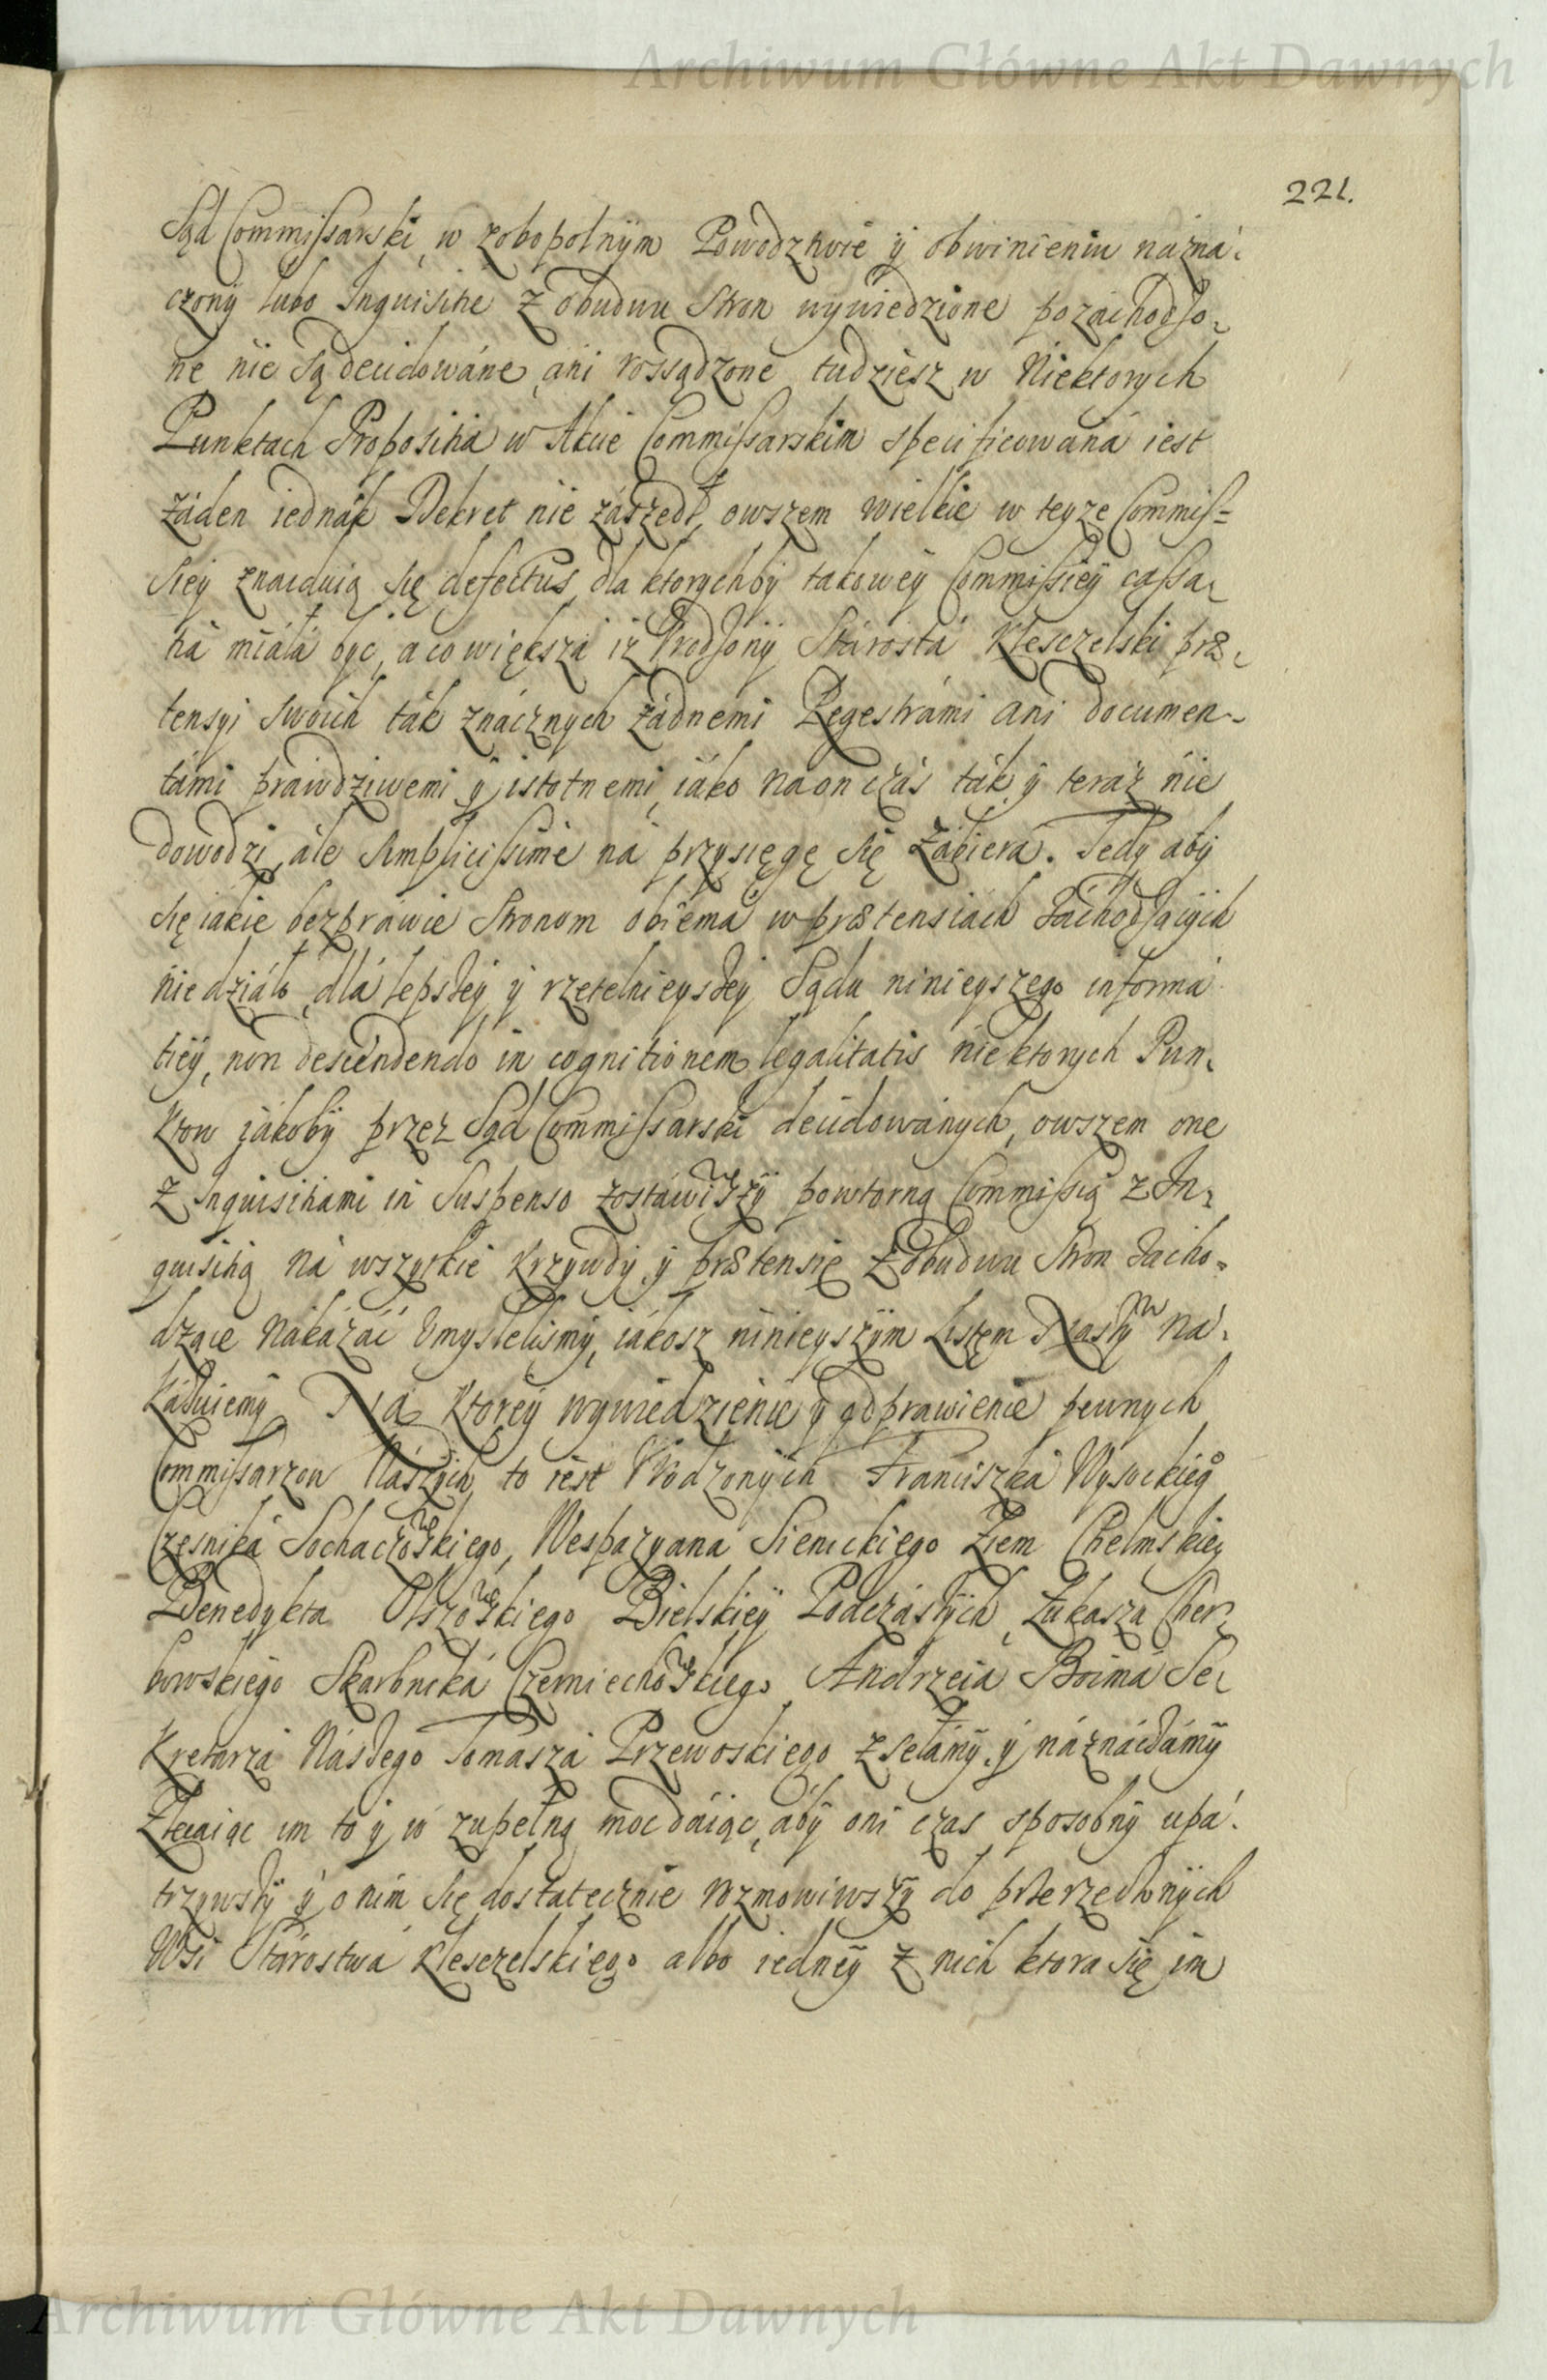 Archiwum Główne Akt Dawnych
221.
Sąd Commissarski, w zobopolnÿm Powodztwie ÿ obwinieniu názná-
czonÿ lubo Inquisitie z obudwu Stron wywiedzione pozáchodzo-
ne nie są decidowáne, áni rossądzone tudziesz w Niektorych
Punktach Propositia w Akcie Commissarskim specificowaná iest
żáden iednák Dekret nie zászedł, owszem wielkie w teyze Commis=
sieÿ znaiduią się defectus, dla ktorychbÿ takoweÿ Commissieÿ cassa-
tiá miáłá bÿc, a co większá iż Vrodzonÿ Stárostá Kleszczelski præ-
tensyi swoich ták znácznych żádnemi Regestrámi ani documen-
támi prawdziwemi ÿ istotnemi, iáko na on czás ták ÿ teráz nie
dowodzi, ále simplicissime ná przysięgę się zábiera. Tedy abÿ
się iákie bezpráwie Stronom obiema w prætensiách záchodzącÿch
niedziáło, dlá lepszeÿ ÿ rzetelnieyszeÿ Sądu ninieyszego informá-
tieÿ, non descendendo in cognitionem legalitatis niektorych Pun-
ktow jákobÿ przez Sąd Commissarski decidowánych, owszem one
z Inquisitiami in Suspenso zostáwiwszÿ powtorną Commissią z In-
quisitią ná wszytkie krzywdy ÿ prætensie z obudwu Stron zacho-
dzące nákázáć Vmyslelismÿ, iákosz ninieyszÿm Listem Naszÿm ná-
kázuiemÿ Na ktoreÿ wywiedzienie ÿ odprawienie pewnych
Commissarzow Nászÿch, to iest Vrodzonÿch Franciszká Wysockieg°
Czesniká Sochaczewskiego, Wespazyana Sienickiego Ziem Chełmskieÿ
Benedykta Olszowskiego Bielskieÿ Podczászÿch, Łukasza Cher-
bowskiego Skarbniká Czerniechowskiego Andrzeia Boimá Se-
kretarzá Nászego Tomaszá Przewoskiego zsełámÿ ÿ náznáczámÿ
Zlecáiąc im to ÿ w zupełną moc dáiąc, abÿ oni czas sposobnÿ upá-
trzywszÿ ÿ o nim się dostatecznie rozmowiwszÿ do przerzeczonÿch
Wsi Stárostwá Kleszczelskiego albo iedneÿ z nich ktora się im
Archiwum Główne Akt Dawnych